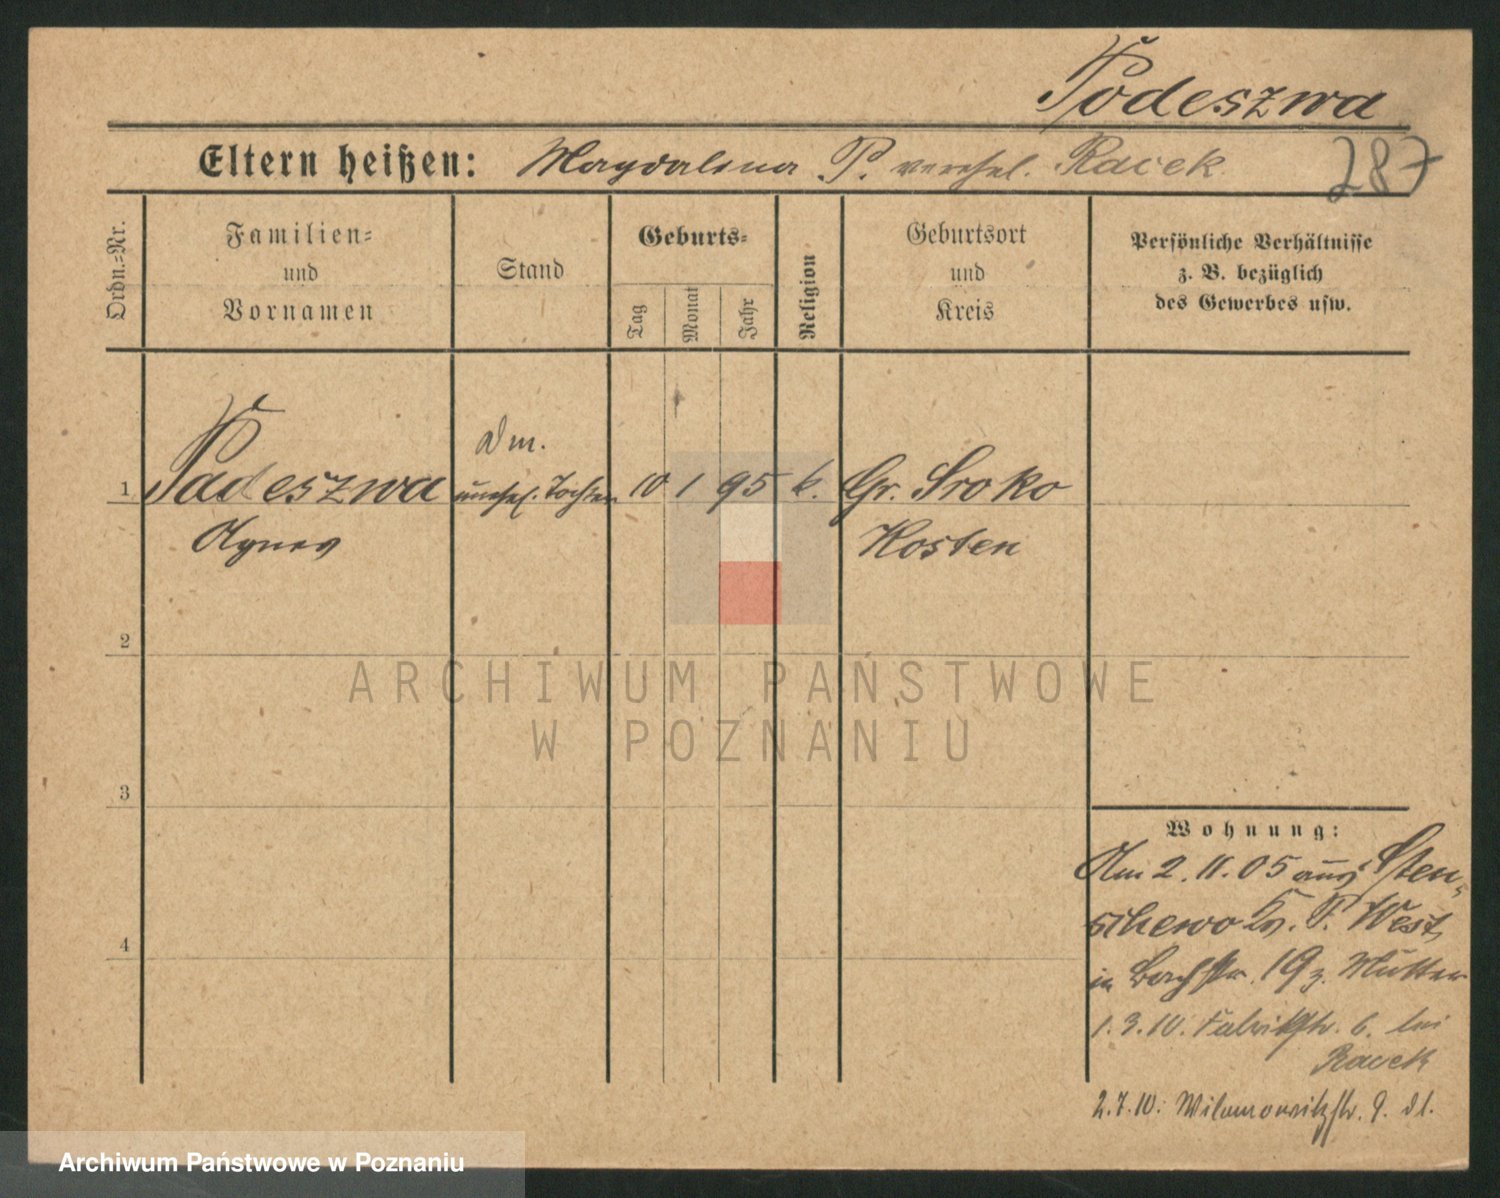 Podeszwa
Eltern heißen: Magdalena P. verehel. Racek
287
Ordn.-Nr.
Familien-
und
Vornamen
Stand
Geburts-
Tag
Monat
Jahr
Religion
Geburtsort
und
Kreis
Persönliche Verhältnisse
z. B. bezüglich
des Gewerbes usw.
Dm.
1 Padeszwa unehel. Tochter 10 1 95 k. Gr. Sroko
Agnes Kosten
2
3
4
Wohnung:
Am 2.11.05 aus Sten-
schewo Kr. P. West,
in Bachstr. 19 z. Mutter
1.3.10. Fabrikstr. 6. bei
Racek
2.7.10: Wilamowitzstr. 9. dl.
ARCHIWUM PAŃSTWOWE
W POZNANIU
Archiwum Państwowe w Poznaniu